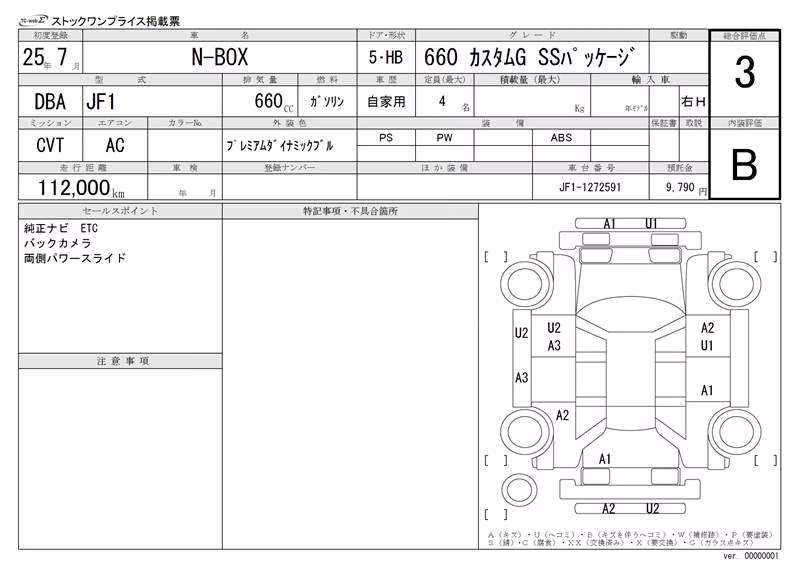 TC-webΣ ストックワンプライス掲載票
初度登録 車名 ドア・形状 グレード 駆動 総合評価点
25年 7月 N-BOX 5・HB 660 カスタムG SSパッケージ 3
型式 排気量 燃料 車歴 定員(最大) 積載量(最大) 輸入車
DBA JF1 660cc ガソリン 自家用 4名 Kg 年モデル 右H
ミッション エアコン カラーNo. 外装色 装備 保証書 取説 内装評価
CVT AC プレミアムダイナミックブル PS PW ABS B
走行距離 車検 登録ナンバー ほか装備 車台番号 預託金
112,000km 年 月 JF1-1272591 9,790円
セールスポイント 特記事項・不具合箇所
純正ナビ ETC
バックカメラ
両側パワースライド
注意事項
A1 U1
[ ] [ ]
U2 U2 A2
A3 U1
A3 A1
A2
A1
[ ] [ ]
A2 U2
[ ]
A(キズ)・U(ヘコミ)・B(キズを伴うヘコミ)・W(補修跡)・P(要塗装)
S(錆)・C(腐食)・XX(交換済み)・X(要交換)・G(ガラス点キズ)
ver. 00000001